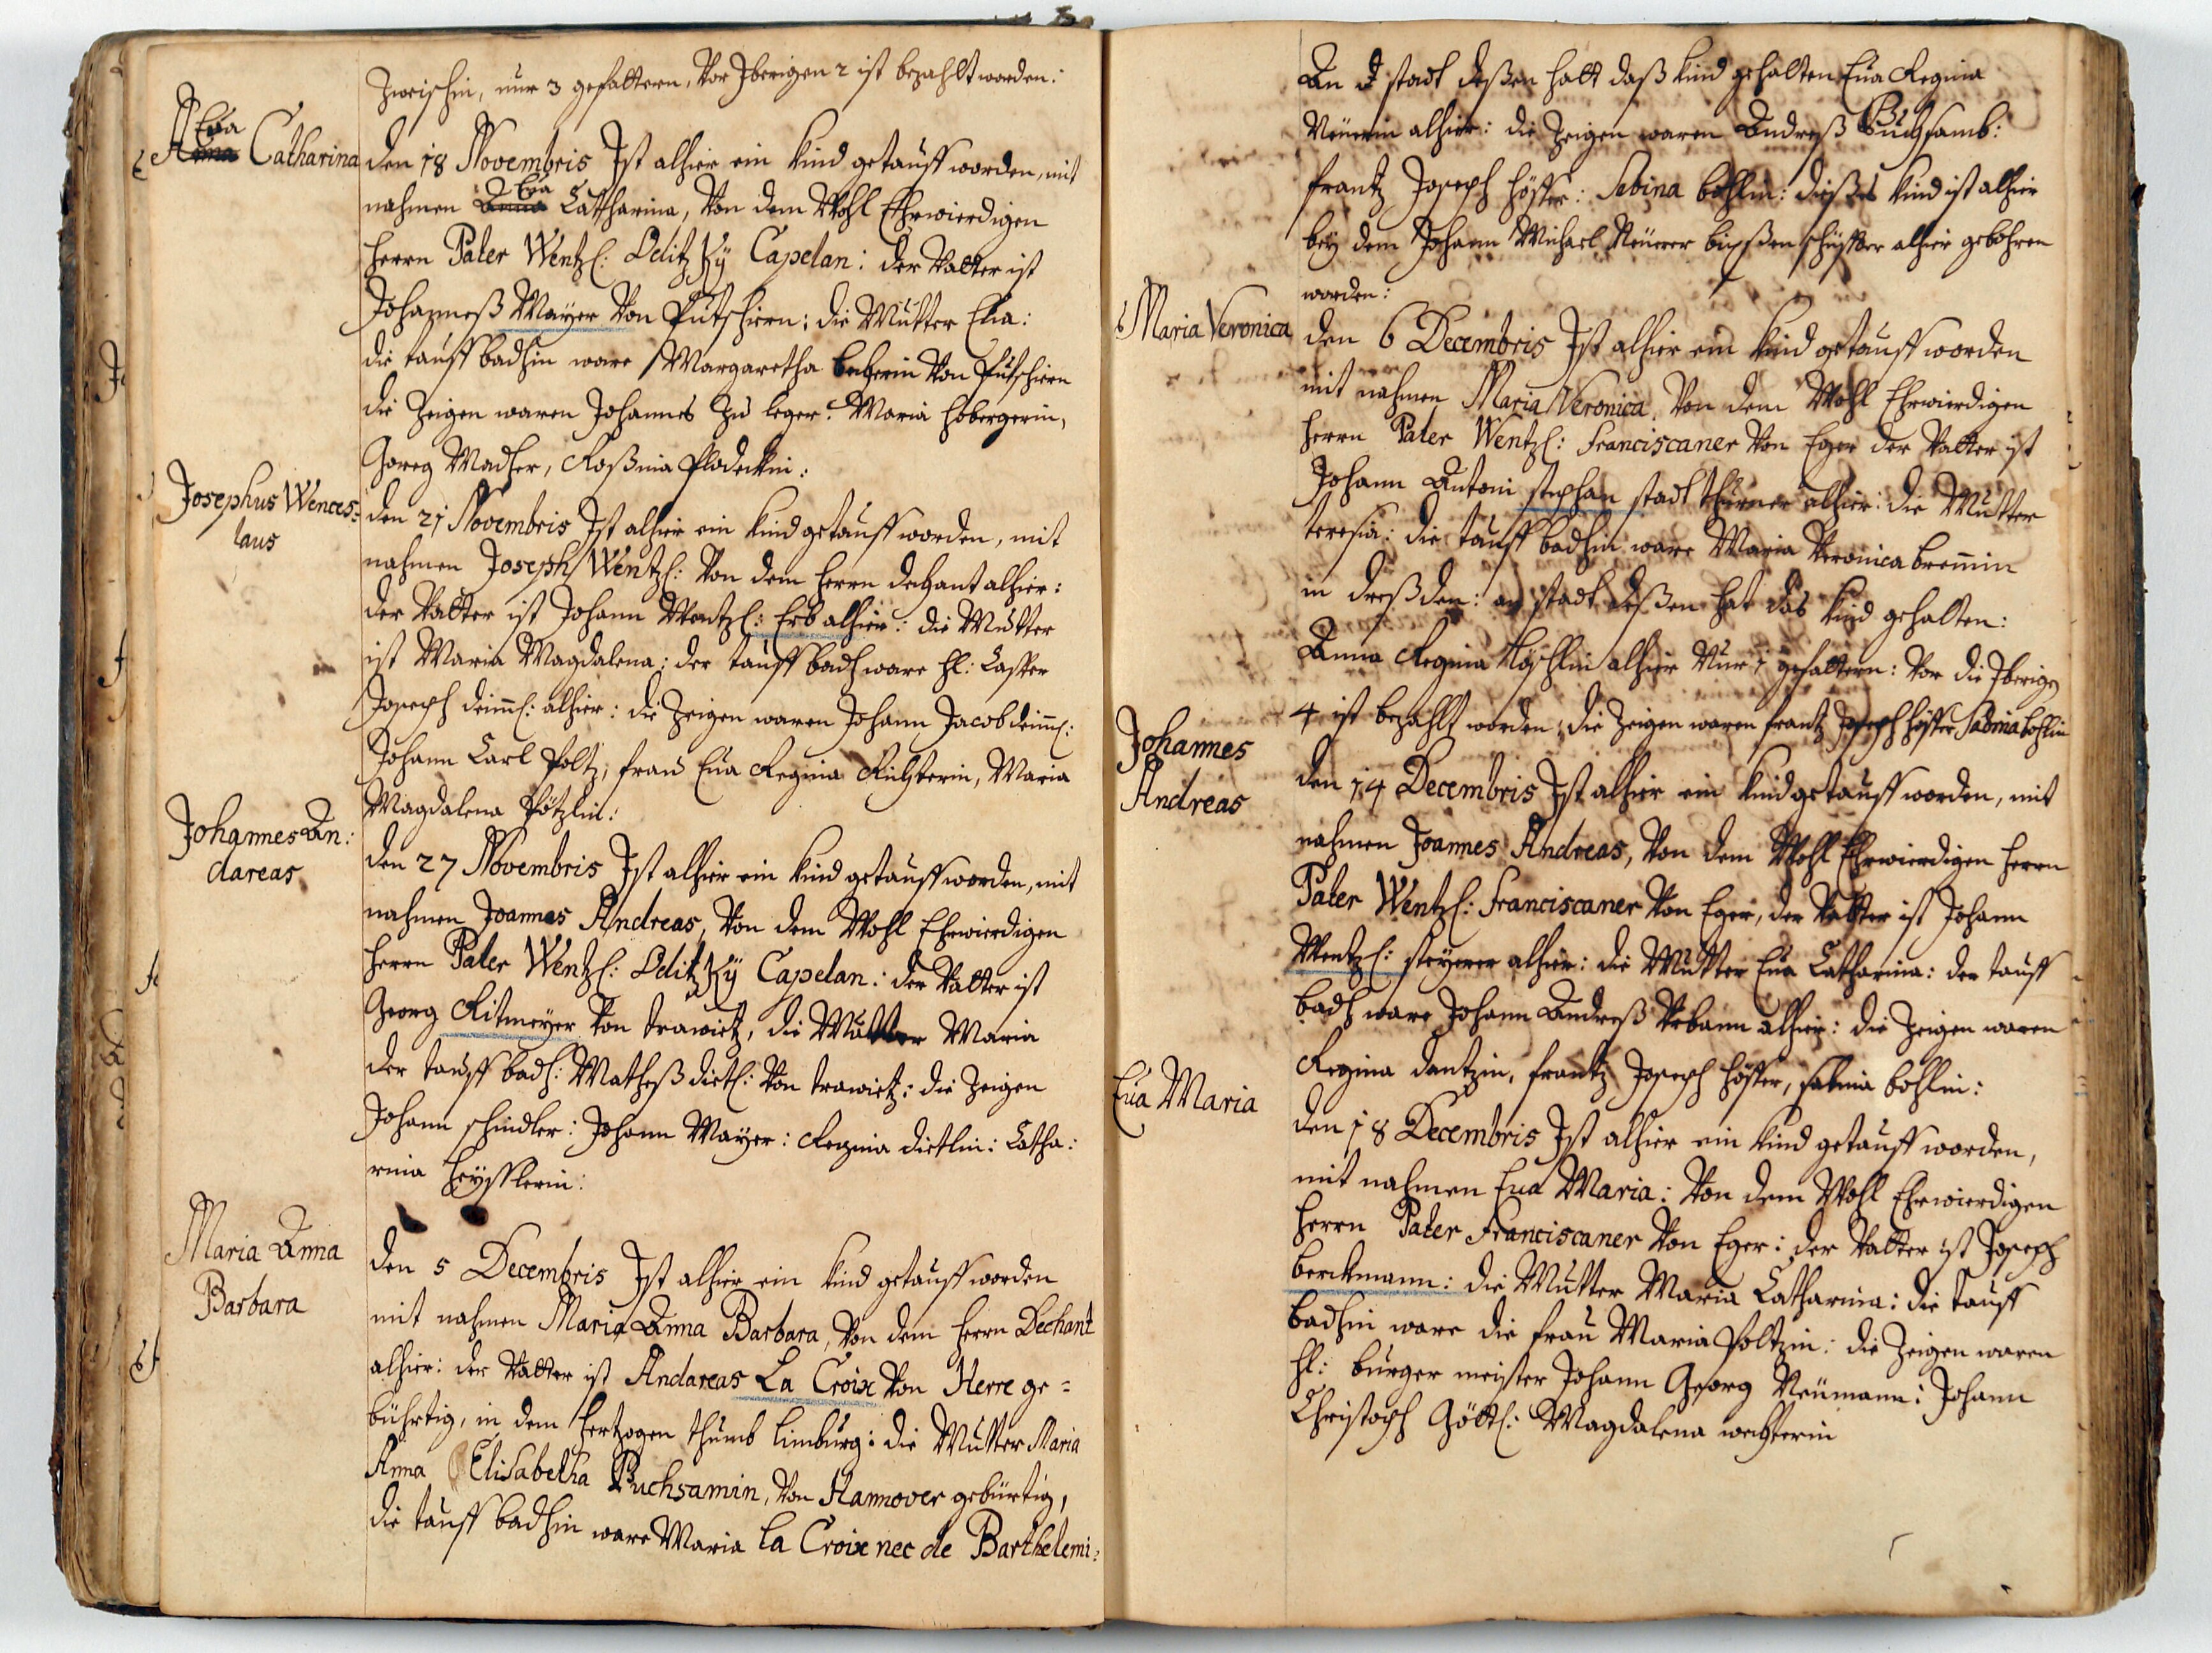 Zwischin, nur 3 gefattern, Vor Iberigen 2 ist bezahlt worden:
Eva
Anna Catharina
den 18 Novembris Ist alhier ein Kind getauff worden, mit
nahmen Anna Eva Catharina, Von dem Wohl Ehrwierdigen
Herrn Pater Wentzl: Capelan: der Vatter ist
Johanneß Mayer Von Putschirn: die Mutter Eua:
die tauff badhin ware Margaretha Von Putschirn
die Zeigen waren Johannes Zu leger: Maria Hobergerin,
Goreg Macher, Roßina
Josephus Wences=
laus
den 21 Novembris Ist alhier ein Kind getauff worden, mit
nahmen Joseph Wentzl: Von dem Herrn dechant alhier:
der Vatter ist Johann Wentzl: Erb alhier: die Mutter
ist Maria Magdalena: der tauff badh ware Hl: Casper
Joseph deimel: alhier: die Zeigen waren Johann Jacob deimel:
Johann Carl Poltz, frau Eua Regina Richterin, Maria
Magdalena Pötzlin:
Johannes An:
dareas
den 27 Novembris Ist alhier ein Kind getauff worden, mit
nahmen Joannes Andreas, Von dem Wohl Ehrwierdigen
Herrn Pater Wentzl: Capelan: der Vatter ist
Georg Ritmeyer Von trawietz, die Mutter Maria
der tauff badh: Matheß dietl: Von trawietz: die Zeigen
Johann schindler: Johann Mayer: Regina dietlin: Catha:
rina
Maria Anna
Barbara
den 5 Decembris Ist alhier ein Kind getauff worden
mit nahmen Maria Anna Barbara, Von dem Herrn Dechant
alhier: der Vatter ist Andareas La Croix Von Herre ge=
bührtig, in dem Hertzogen thumb Limburg: die Mutter Maria
Anna Elisabetha Puchsamin, Von Hannover gebürtig,
die tauff badhin ware Maria la Croix nec de Barthelemi:
An d stadt deßen hatt daß Kind gehalten Eua Regina
Neüerin alhier: die Zeigen waren Andreß Buchsamb:
frantz Joseph Höffer: Sabina bohlin: dießes Kind ist alhier
bey dem Johann Michael Neüerer alhier gebohren
worden:
Maria Veronica
den 6 Decembris Ist alhier ein Kind getauff worden
mit nahmen Maria Veronica, Von dem Wohl Ehrwierdigen
Herrn Pater Wentzl: Franciscaner Von Eger der Vatter ist
Johann Antoni stephan stadt thurner alhier: die Mutter
teresia: die tauff badhin ware Maria Veronica
in dreßden: an stadt deßen hat das Kind gehalten:
Anna Regina alhier Nur 1 gefattern: Vor die Iberigen
4 ist bezahlt worden: die Zeigen waren frantz Joseph Höffer Sabina bohlin
Johannes
Andreas
den 14 Decembris Ist alhier ein Kind getauff worden, mit
nahmen Joannes Andreas, Von dem Wohl Ehrwierdigen Herrn
Pater Wentzl: Franciscaner Von Eger, der Vatter ist Johann
Wentzl: steyerer alhier: die Mutter Eua Catharina: der tauff
badh ware Johann Andreß Urbann alhier: die Zeigen waren
Regina dantzin, frantz Joseph Höffer, sabina bohlin:
Eua Maria
den 18 Decembris Ist alhier ein Kind getauff worden,
mit nahmen Eua Maria: Von dem Wohl Ehrwierdigen
Herrn Pater Franciscaner Von Eger: der Vatter ist Joseph
berckmann: die Mutter Maria Catharina: die tauff
badhin ware die frau Maria Poltzin: die Zeigen waren
Hl: burger meister Johann Georg Neümann: Johann
Christoph Göttl: Magdalena wechterin